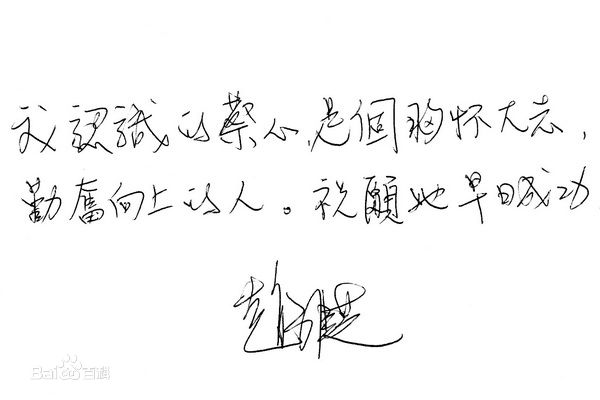 我認識的蔡心,是個胸怀大志,
勤奮向上的人。祝願她早日成功
Bai百科